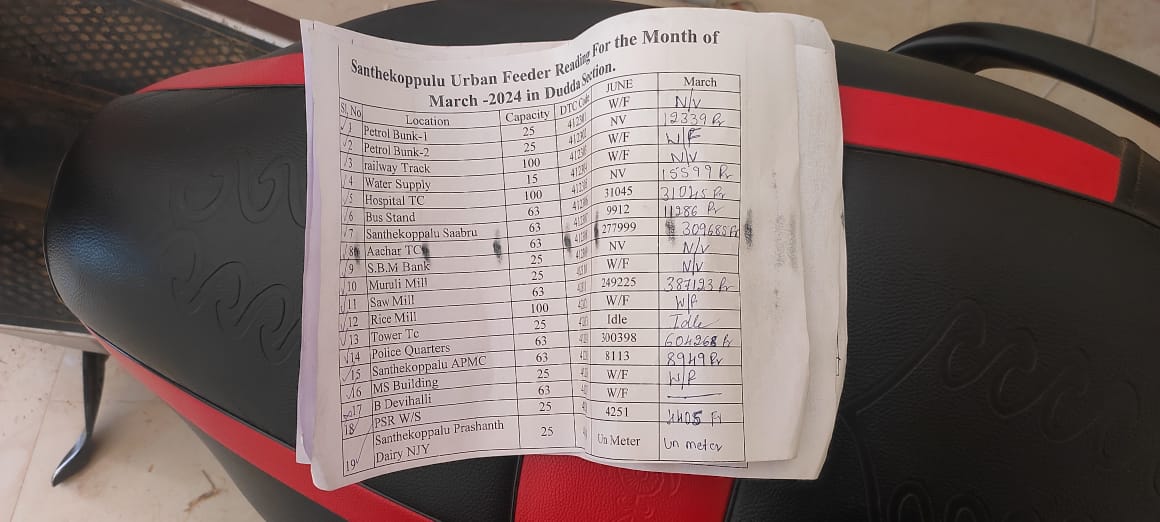 Santhekoppulu Urban Feeder Reading For the Month of
March -2024 in Dudda Section.
Sl, No Location Capacity DTC Code JUNE March
1 Petrol Bunk-1 25 W/F N/V
2 Petrol Bunk-2 25 NV 12339 Pr
3 railway Track 100 W/F W/F
4 Water Supply 15 W/F N/V
5 Hospital TC 100 NV 15599 Pr
6 Bus Stand 63 31045 31045 Pr
7 Santhekoppalu Saabru 63 9912 11286 Pr
8 Aachar TC 63 277999 309685 Pr
9 S.B.M Bank 25 NV N/V
10 Muruli Mill 25 W/F N/V
11 Saw Mill 63 249225 387123 Pr
12 Rice Mill 100 W/F W/F
13 Tower Tc 25 Idle Idle
14 Police Quarters 63 300398 604268 Pr
15 Santhekoppalu APMC 63 8113 8949 Pr
16 MS Building 25 W/F W/F
17 B Devihalli 63 W/F
18 PSR W/S 25 4251 4405 Pr
19 Santhekoppalu Prashanth 25 Un Meter Un meter
Dairy NJY